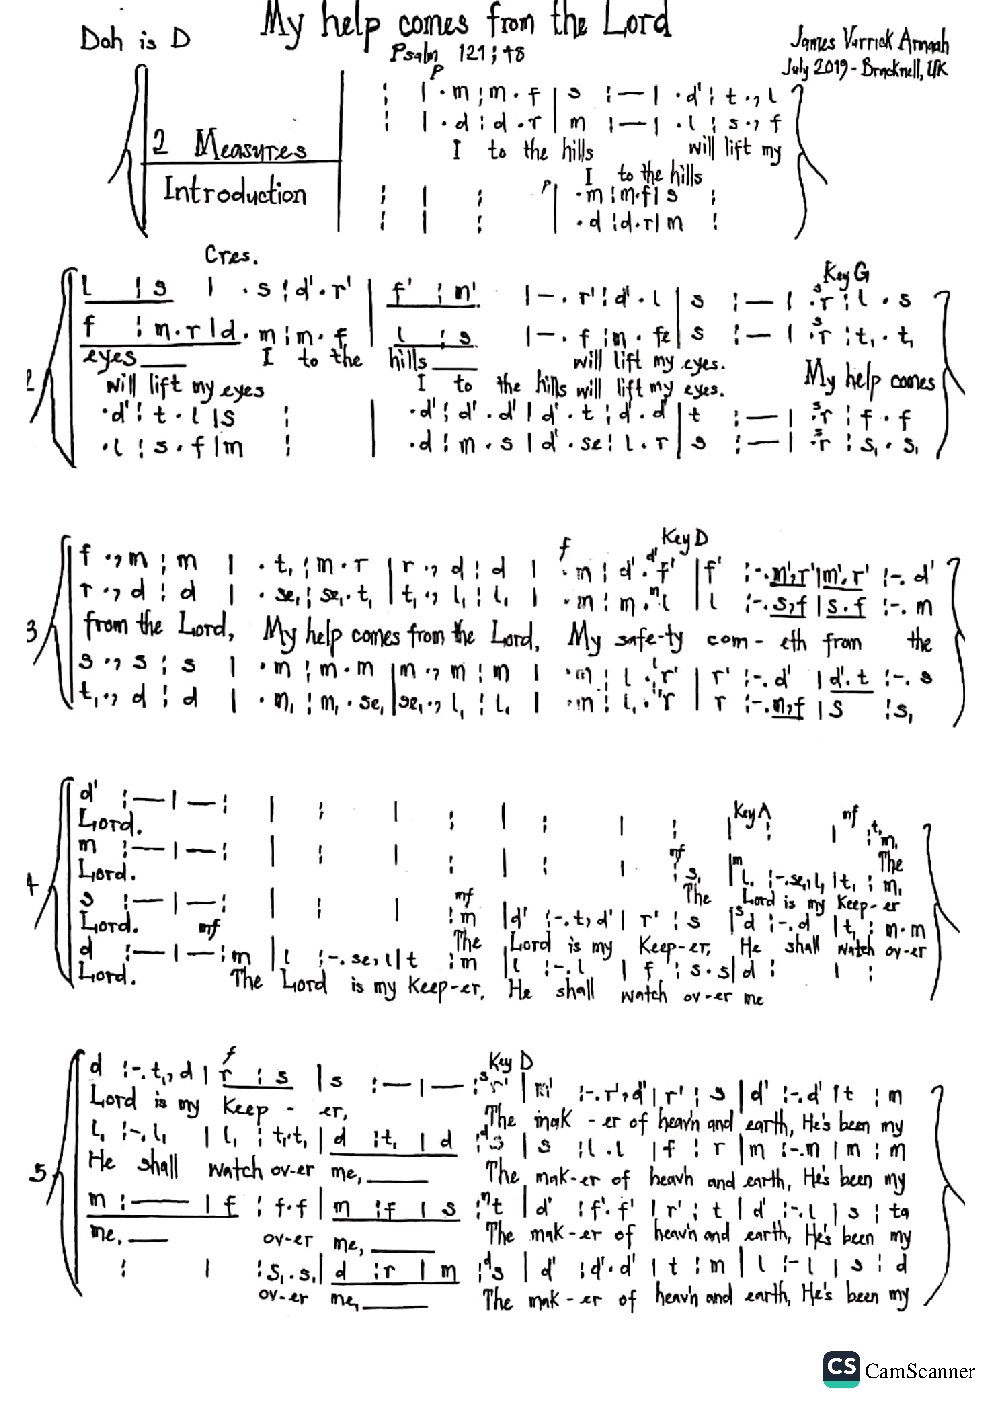 My help comes from the Lord
Doh is D
Psalm 121 ; 48
James Varrick Armah
July 2019 - Bracknell, UK
p
: | . m : m . f | s : — | . d' : t . , l
2 Measures
: | . d : d . r | m : — | . l : s . , f
I to the hills will lift my
Introduction
I to the hills
: | : p | . m : m . f | s :
: | : | . d : d . r | m :
Cres.
Key G
l : s | . s : d' . r' | f' : m' | – . r' : d' . l | s : — | . r : l . s
f : m . r | d . m : m . f | l : s | – . f : m . fe | s : — | . r : t, . t,
eyes I to the hills will lift my eyes.
will lift my eyes I to the hills will lift my eyes. My help comes
2
. d' : t . l | s : | . d' : d' . d' | d' . t : d' . d' | t : — | . r : f . f
. l : s . f | m : | . d : m . s | d' . se : l . r | s : — | . r : s, . s,
f Key D
f . , m : m | . t, : m . r | r . , d : d | . m : d' . f' | f' : – . m' , r' | m' . r' : – . d'
r . , d : d | . se, : se, . t, | t, . , l, : l, | . m : m . l | l : – . s , f | s . f : – . m
3 from the Lord, My help comes from the Lord, My safe-ty com - eth from the
s . , s : s | . m : m . m | m . , m : m | . m : l . r' | r' : – . d' | d' . t : – . s
t, . , d : d | . m, : m, . se, | se, . , l, : l, | . m : l, . r | r : – . m , f | s : s,
d' : — | — : | : | : | : | : Key A | : | mf : m,
Lord. The
m : — | — : | : | : | : | mf : s, | l, : – . se, , l, | t, : m,
Lord. The Lord is my Keep-er
4
s : — | — : | : | mf : m | d' : – . t , d' | r' : s | d : – . d | t, : m . m
Lord. The Lord is my Keep-er, He shall watch ov-er
mf
d : — | — : m | l : – . se , l | t : m | l : – . l | f : s . s | d : | :
Lord. The Lord is my Keep-er, He shall watch ov-er me
f Key D
d : – . t, , d | r : s | s : — | — : r' | m' : – . r' , d' | r' : s | d' : – . d' | t : m
Lord is my Keep - er, The mak - er of heav'n and earth, He's been my
l, : – . l, | l, : t, . t, | d : t, | d : s | s : l . l | f : r | m : – . m | m : m
5 He shall watch ov-er me, The mak-er of heav'n and earth, He's been my
m : — | f : f . f | m : f | s : t | d' : f' . f' | r' : t | d' : – . l | s : ta
me, ov-er me, The mak-er of heav'n and earth, He's been my
: | : s, . s, | d : r | m : s | d' : d' . d' | t : m | l : – l | s : d
ov-er me, The mak-er of heav'n and earth, He's been my
CS CamScanner